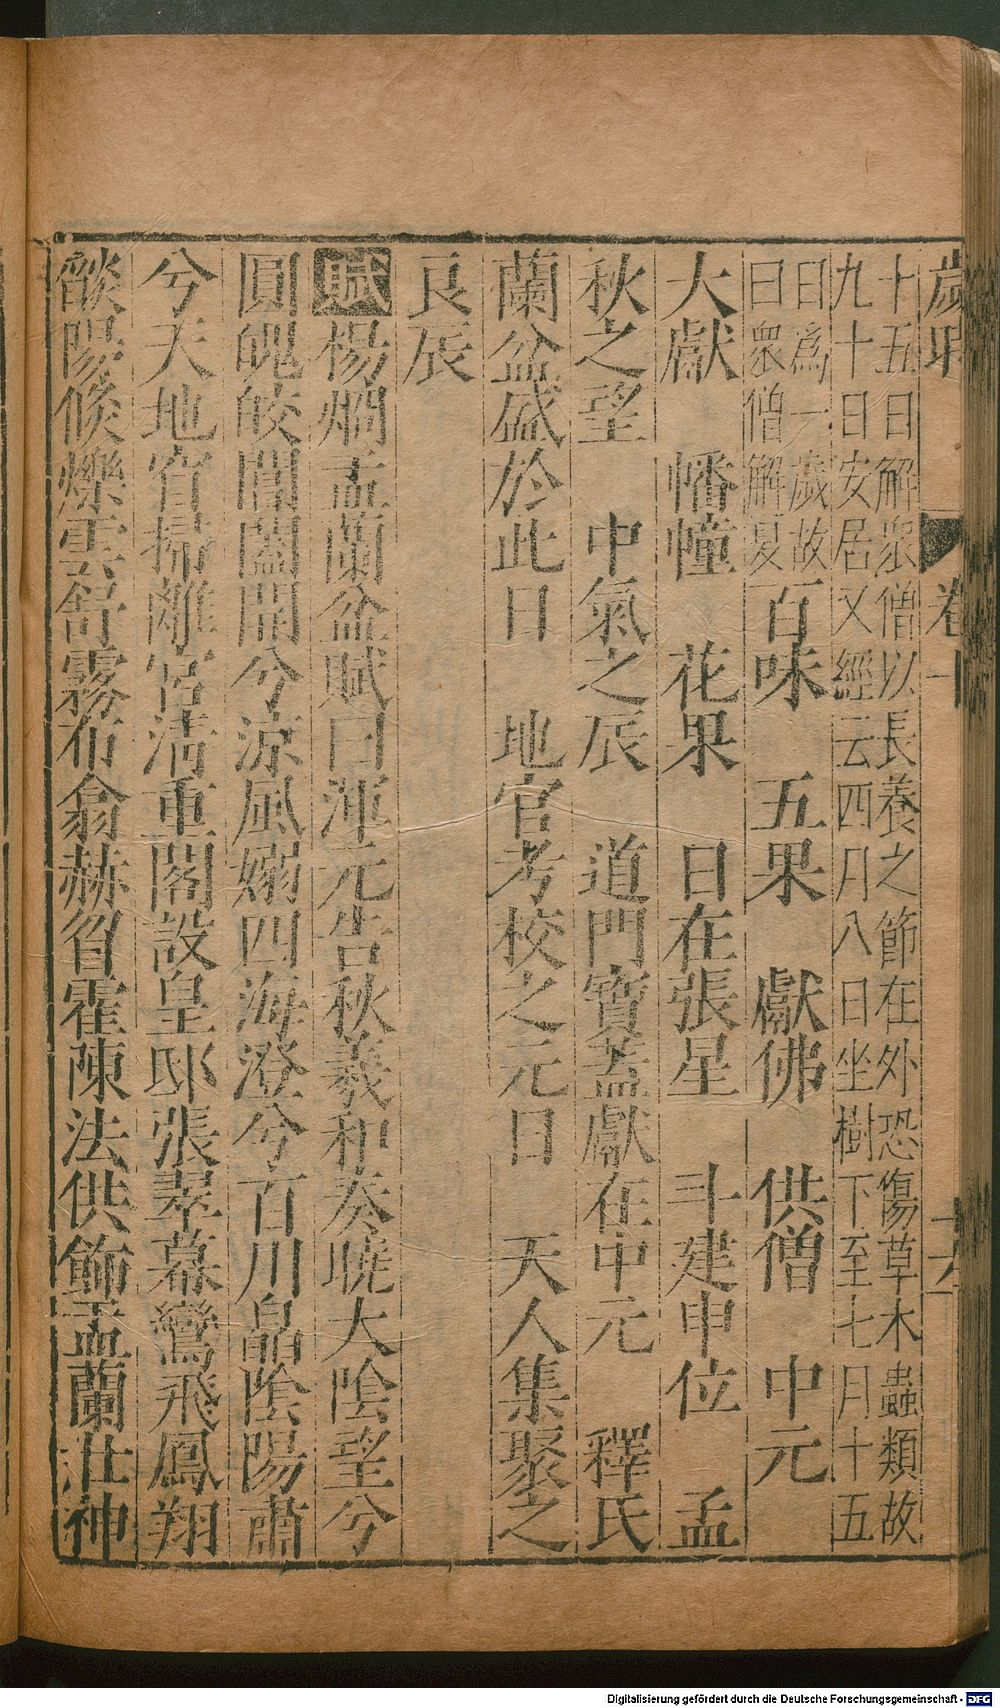 歲時 卷十 十六
十五日解衆僧以長養之節在外恐傷草木蟲類故
九十日安居又經云四月八日坐樹下至七月十五
日爲一歲故
曰衆僧解夏 百味 五果 獻佛 供僧 中元
大獻 幡幢 花果 日在張星 斗建申位 孟
秋之望 中氣之辰 道門寶蓋獻在中元 釋氏
蘭盆盛於此日 地官考校之元日 天人集聚之
良辰
賦楊烱盂蘭盆賦曰渾元告秋羲和奏曉大陰望兮
圓魄皎閶闔開兮涼風嫋四海澄兮百川皛陰陽肅
兮天地窅掃離宮清重閣設皇邸張翠幕鸞飛鳳翔
燄陽倏爍雲舒霧布翕赫曶霍陳法供飾盂蘭壯神
Digitalisierung gefördert durch die Deutsche Forschungsgemeinschaft - DFG